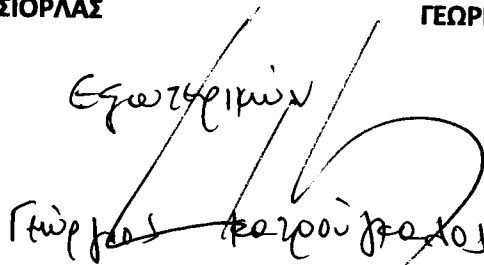 ΣΙΟΡΛΑΣ ΓΕΩΡΓ
Εξωτερικών
Γιώργος Κατρούγκαλος